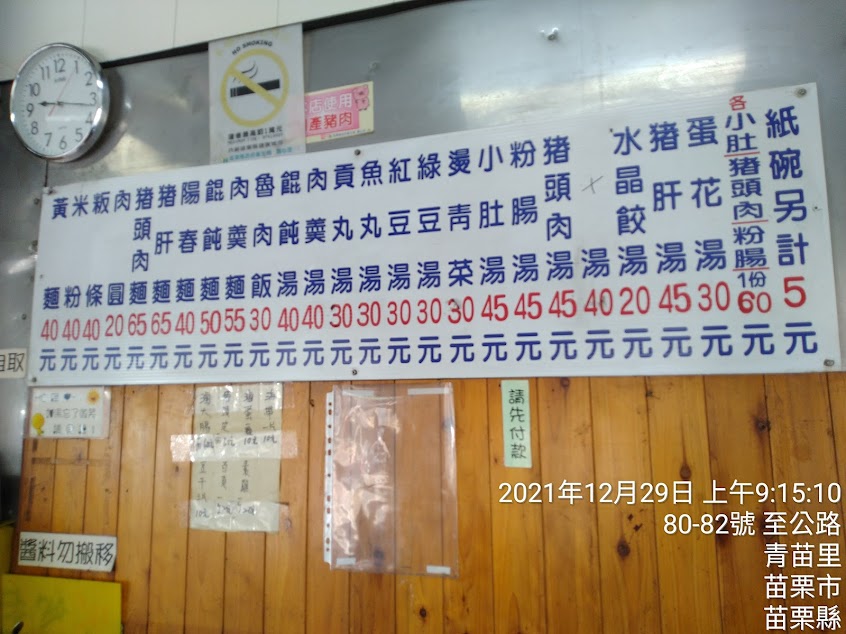 12
NO SMOKING
店使用
產豬肉
黃麵40元
米粉40元
粄條40元
肉圓20元
豬頭肉麵65元
豬肝麵65元
陽春麵40元
餛飩麵50元
肉羹麵55元
魯肉飯30元
餛飩湯40元
肉羹湯40元
貢丸湯30元
魚丸湯30元
紅豆湯30元
綠豆湯30元
燙青菜30元
小肚湯45元
粉腸湯45元
豬頭肉湯45元
湯40元
水晶餃湯20元
豬肝湯45元
蛋花湯30元
各小肚豬頭肉粉腸1份60元
紙碗另計5元
自取
請先付款
醬料勿搬移
2021年12月29日 上午9:15:10
80-82號 至公路
青苗里
苗栗市
苗栗縣